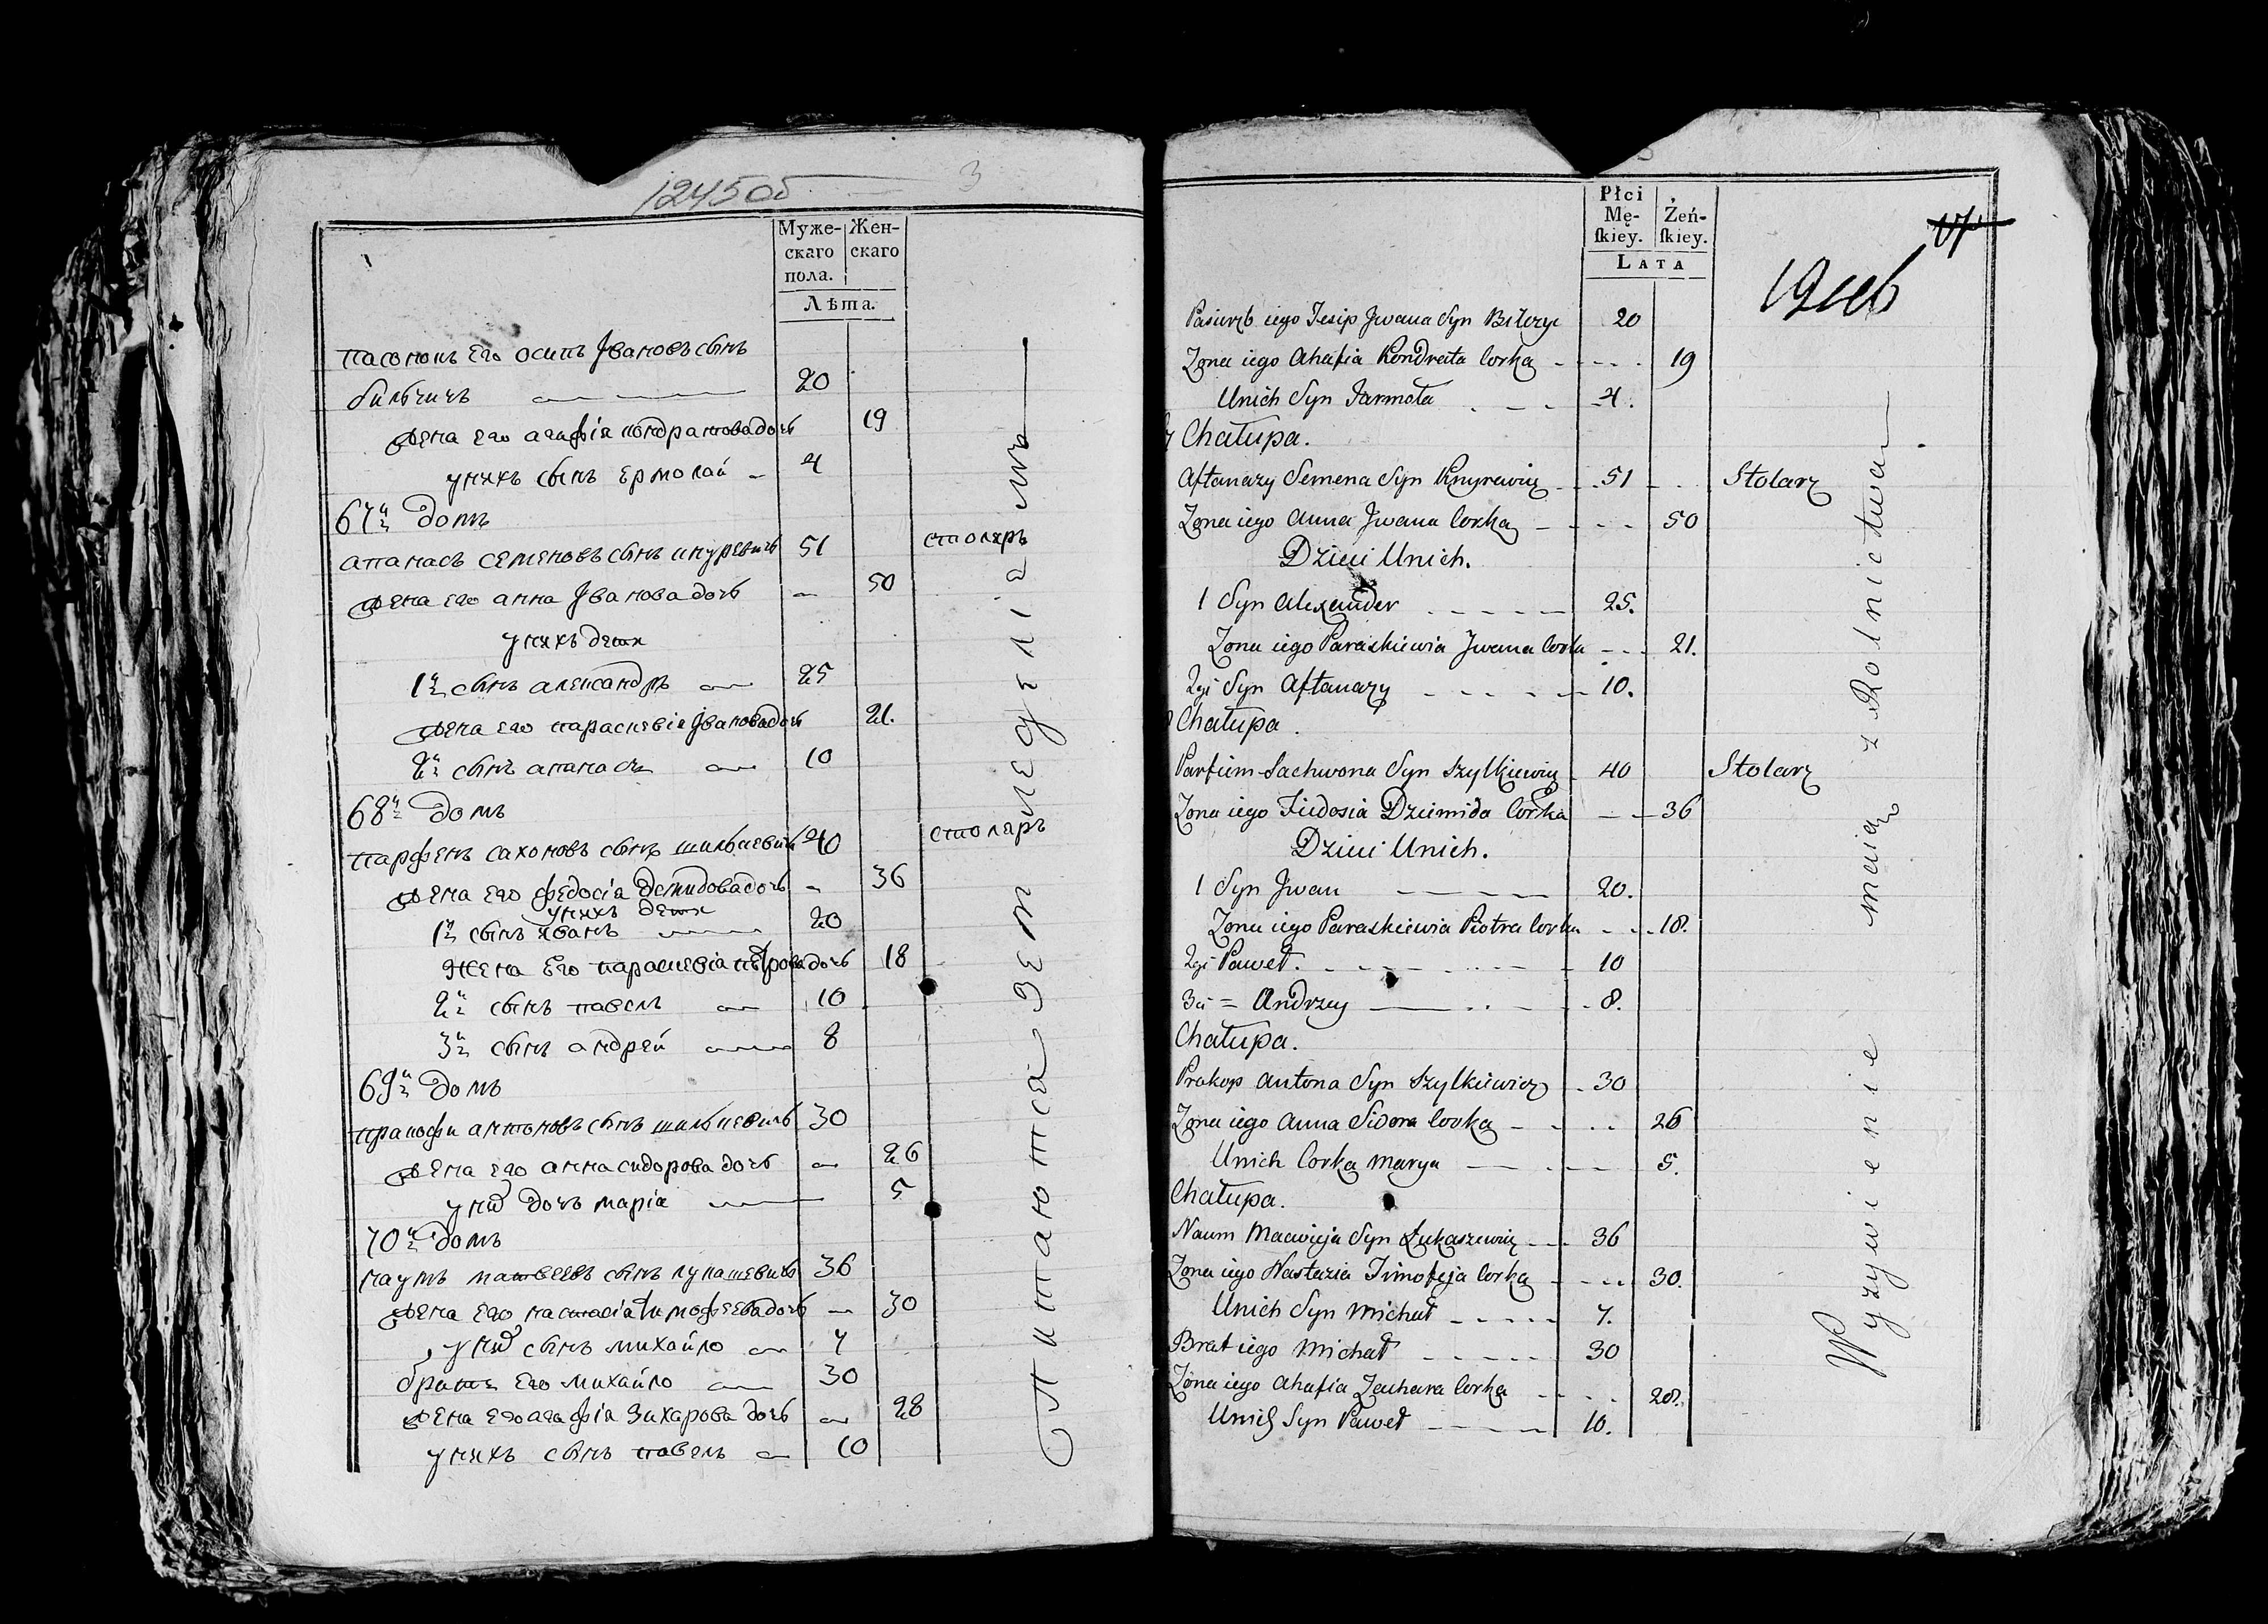 1245об 3
Муже-
скаго
пола.
Жен-
скаго
Лѣта.
пасонокъ его осипъ Ивановъ сынъ
бильчичъ 20
жена его агафiя кондратова дочь 19
у нихъ сынъ ермолай 4
67й домъ
апанасъ семеновъ сынъ кнуревичъ 51 столяръ
жена его анна Иванова дочь 50
у нихъ дети
1й сынъ александръ 25
жена его параскевiя Иванова дочь 21.
2й сынъ апанасъ 10
68й домъ
парфенъ сахоновъ сынъ шилькевичъ 40 столяръ
жена его федосiя демидова дочь 36
у нихъ дети
1й сынъ иванъ 20
жена его параскевiя петрова дочь 18
2й сынъ павелъ 10
3й сынъ андрей 8
69й домъ
прокофи антоновъ сынъ шилькевичъ 30
жена его анна сидорова дочь 26
у них дочь марiя 5
70й домъ
наумъ матвеевъ сынъ лукашевичъ 36
жена его настасiя тимофеева дочь 30
у них сынъ михайло 7
братъ его михайло 30
жена его агафiя захарова дочь 28
у нихъ сынъ павелъ 10
Питаются земледелiемъ
Płci
Mę-
ſkiey.
Żeń-
ſkiey.
LATA
Pasierzb iego Jesip Jwana Syn Bilczyc 20
Zona iego Ahafia Kondrata Corka 19
Unich Syn Jarmoła 4.
Chałupa.
Aftanazy Semena Syn Knyrewicz 51 Stolarz
Zona iego Anna Jwana Corka 50
Dzieci Unich.
1 Syn Alexander 25.
Zona iego Paraskiewia Jwana Corka 21.
2gi Syn Aftanazy 10.
Chałupa
Parfiim Sachwona Syn Szylkiewicz 40 Stolarz
Zona iego Fiedosia Dziemida Corka 36
Dzieci Unich.
1 Syn Jwan 20.
Zona iego Paraskiewia Piotra Corka 18.
2gi Paweł. 10
3ci = Andrzey 8.
Chałupa.
Prokop Antona Syn Szylkiewicz 30
Zona iego Anna Sidora Corka 26
Unich Corka Marya 5.
Chałupa.
Naum Macwieja Syn Łukaszewicz 36
Zona iego Nastazia Timofieja Corka 30.
Unich Syn Michał 7.
Brat iego Michał 30
Zona iego Ahafia Zachara Corka 28.
Unich Syn Paweł 10.
Wyzywienie maią z Rolnictwa